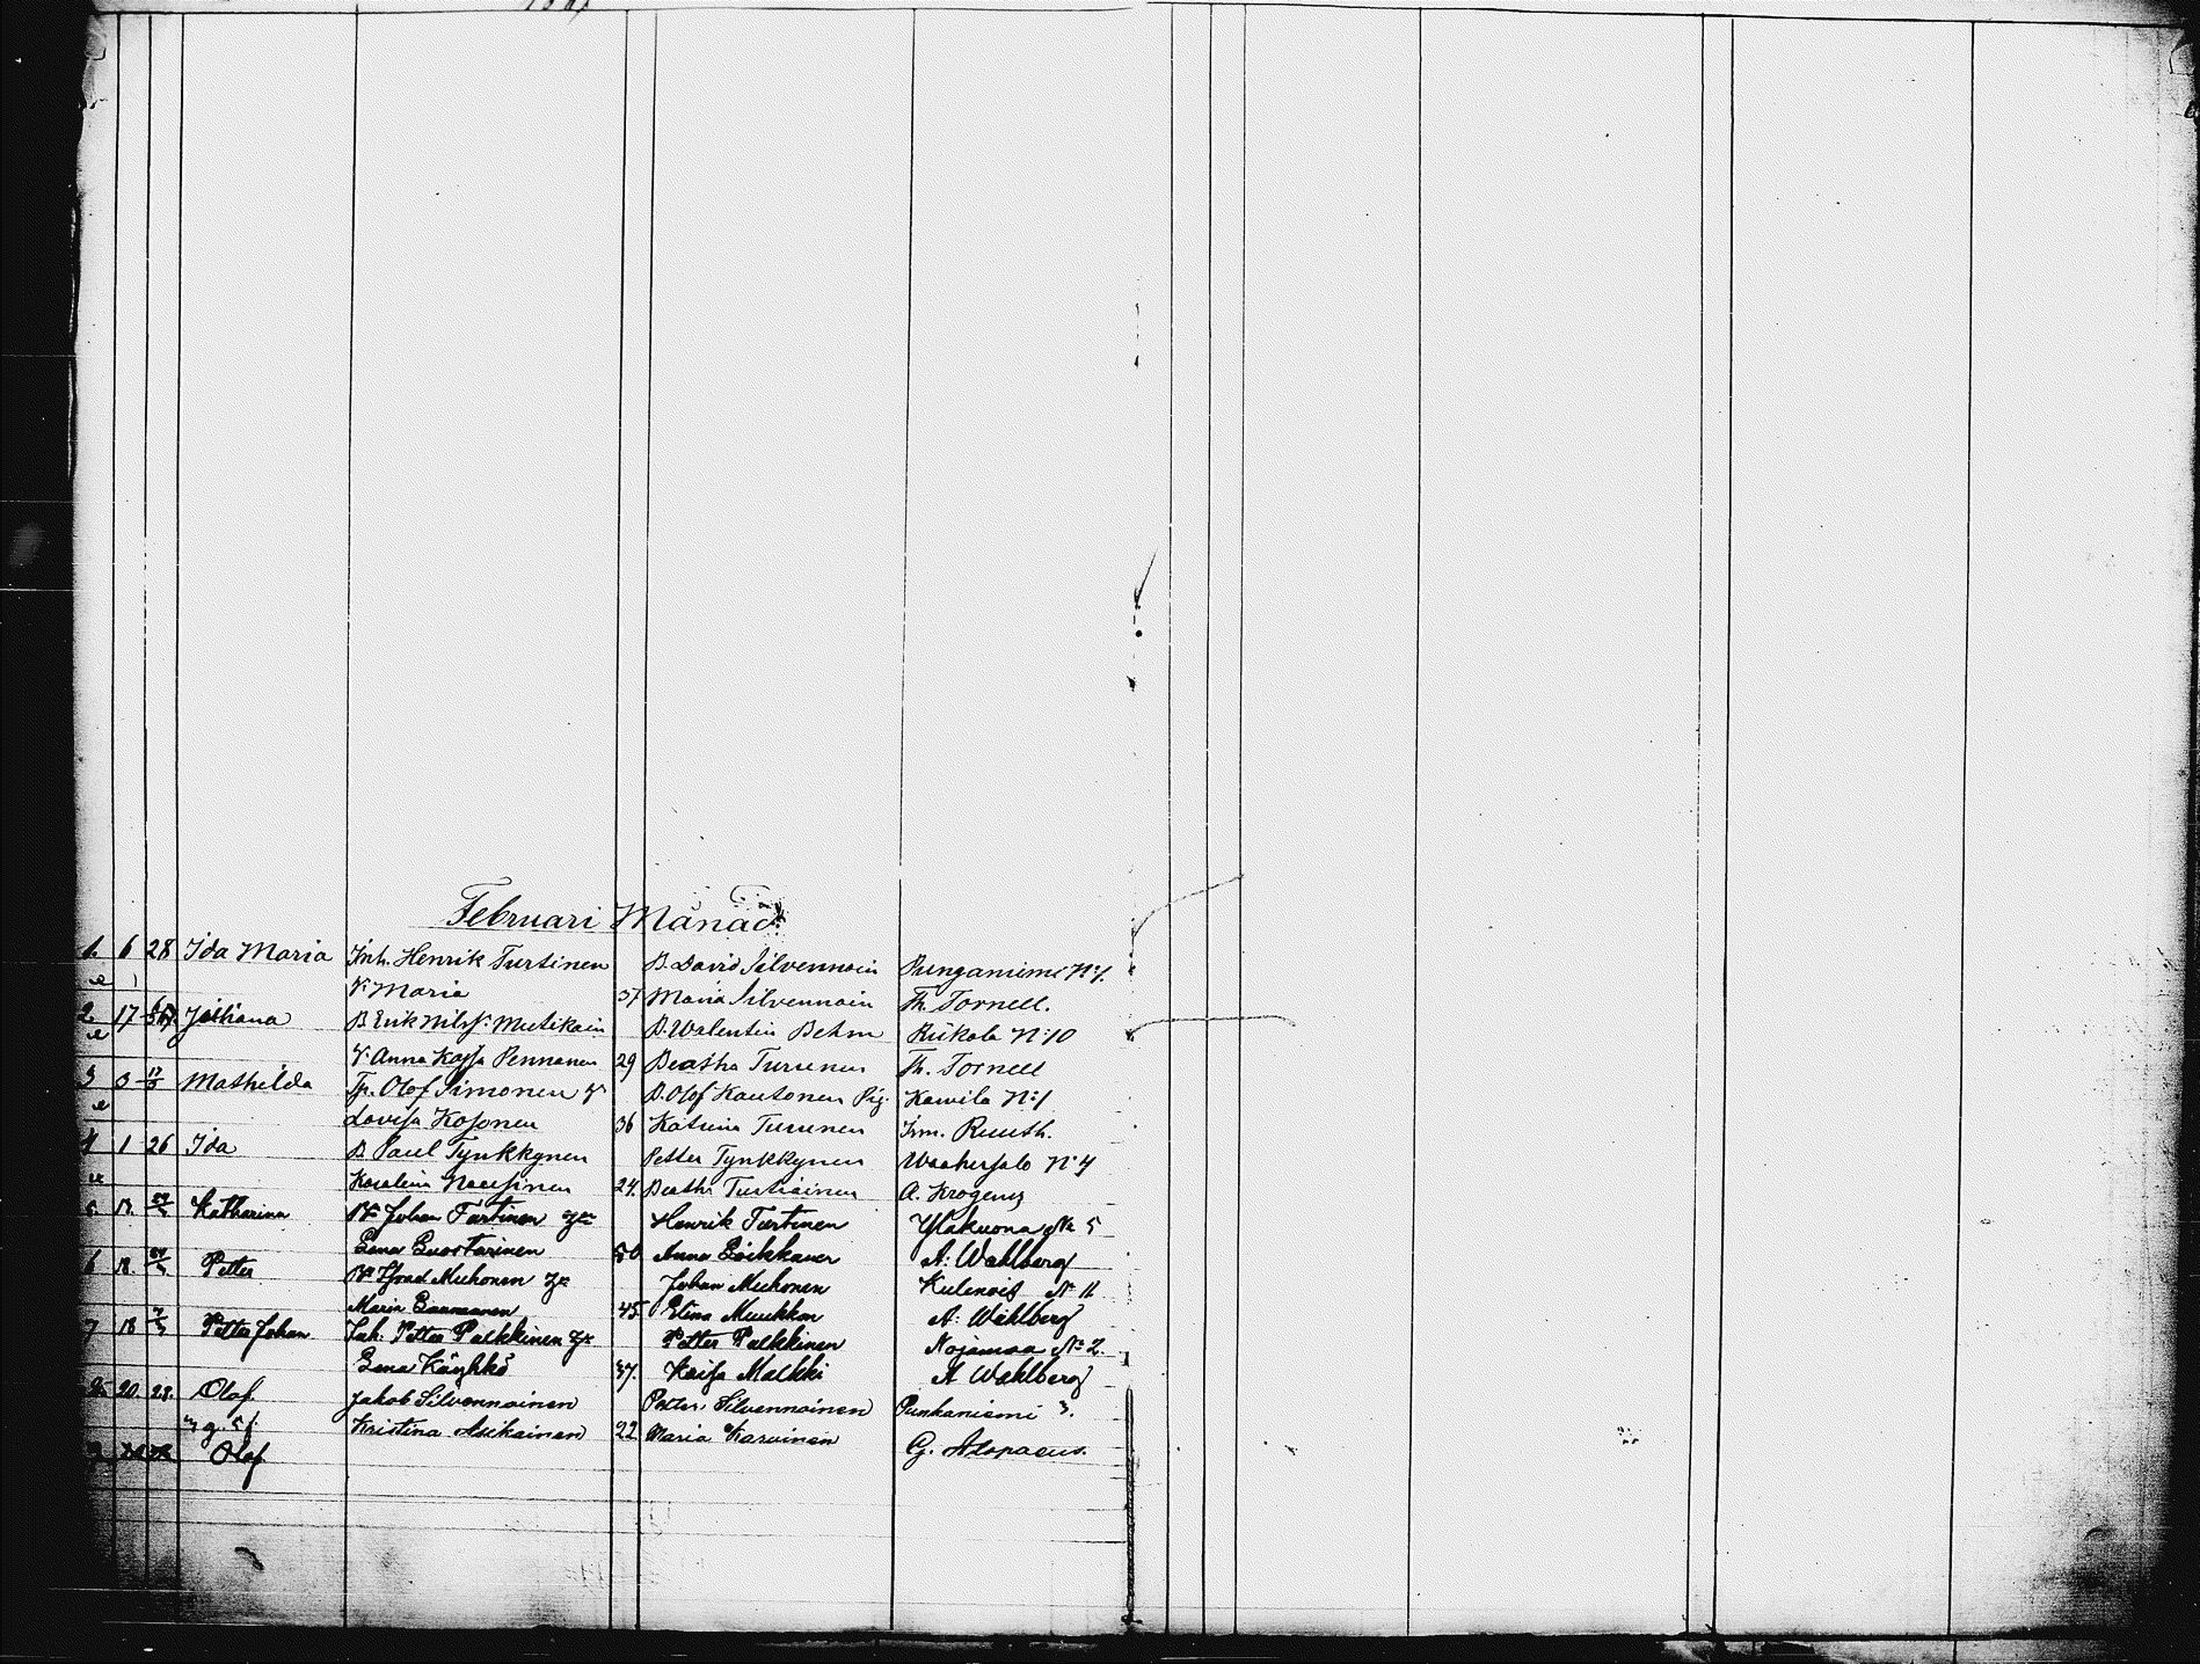 Februari Månad
1. 6 28 Ida Maria Inh. Henrik Turtinen B. David Silvennoin Punganiemi N:1.
e H: Maria 37 Maria Silvennoin Th. Tornell.
2. 17 Juliana B Erik Nilsf. Mutikain B. Walentin Behm Rükola N:10
e H. Anna Kajsa Pennanen 29 Beatha Turunen Th. Tornell
3 3 17/3 Mathilda Tp. Olof Simonen H B. Olof Kautonen Pig. Kawila N:1
e Lovisa Kosonen 36 Katrina Turunen Inn. Ruuth.
4 1 26 Ida B Paul Tynkkynen Petter Tynkkynen Waahersalo N:4
e Naussinen 24. Beatha Turtiainen A. Krogerus
5. 13. Katharina Johan Turtinen Henrik Turtinen Ylakuona No 5
Lena Luostarinen 30 Anna Loikkanen A: Wahlberg
6 18. Petter Muhonen Johan Muhonen Kulenois N 11
Maria 45 Elina Muukkon A: Wahlberg
7 18 Petter Johan Inh. Petter Pulkkinen Petter Pulkkinen Nojamaa No 2.
Lena Käyhkö 37. Kaisa Malkki A Wahlberg
20. 28. Olof Jakob Silvennoinen Petter Silvennoinen Punkaniemi 3.
Kristina Asikainen 22 Maria Karvinen G. Alopaeus.
Olof